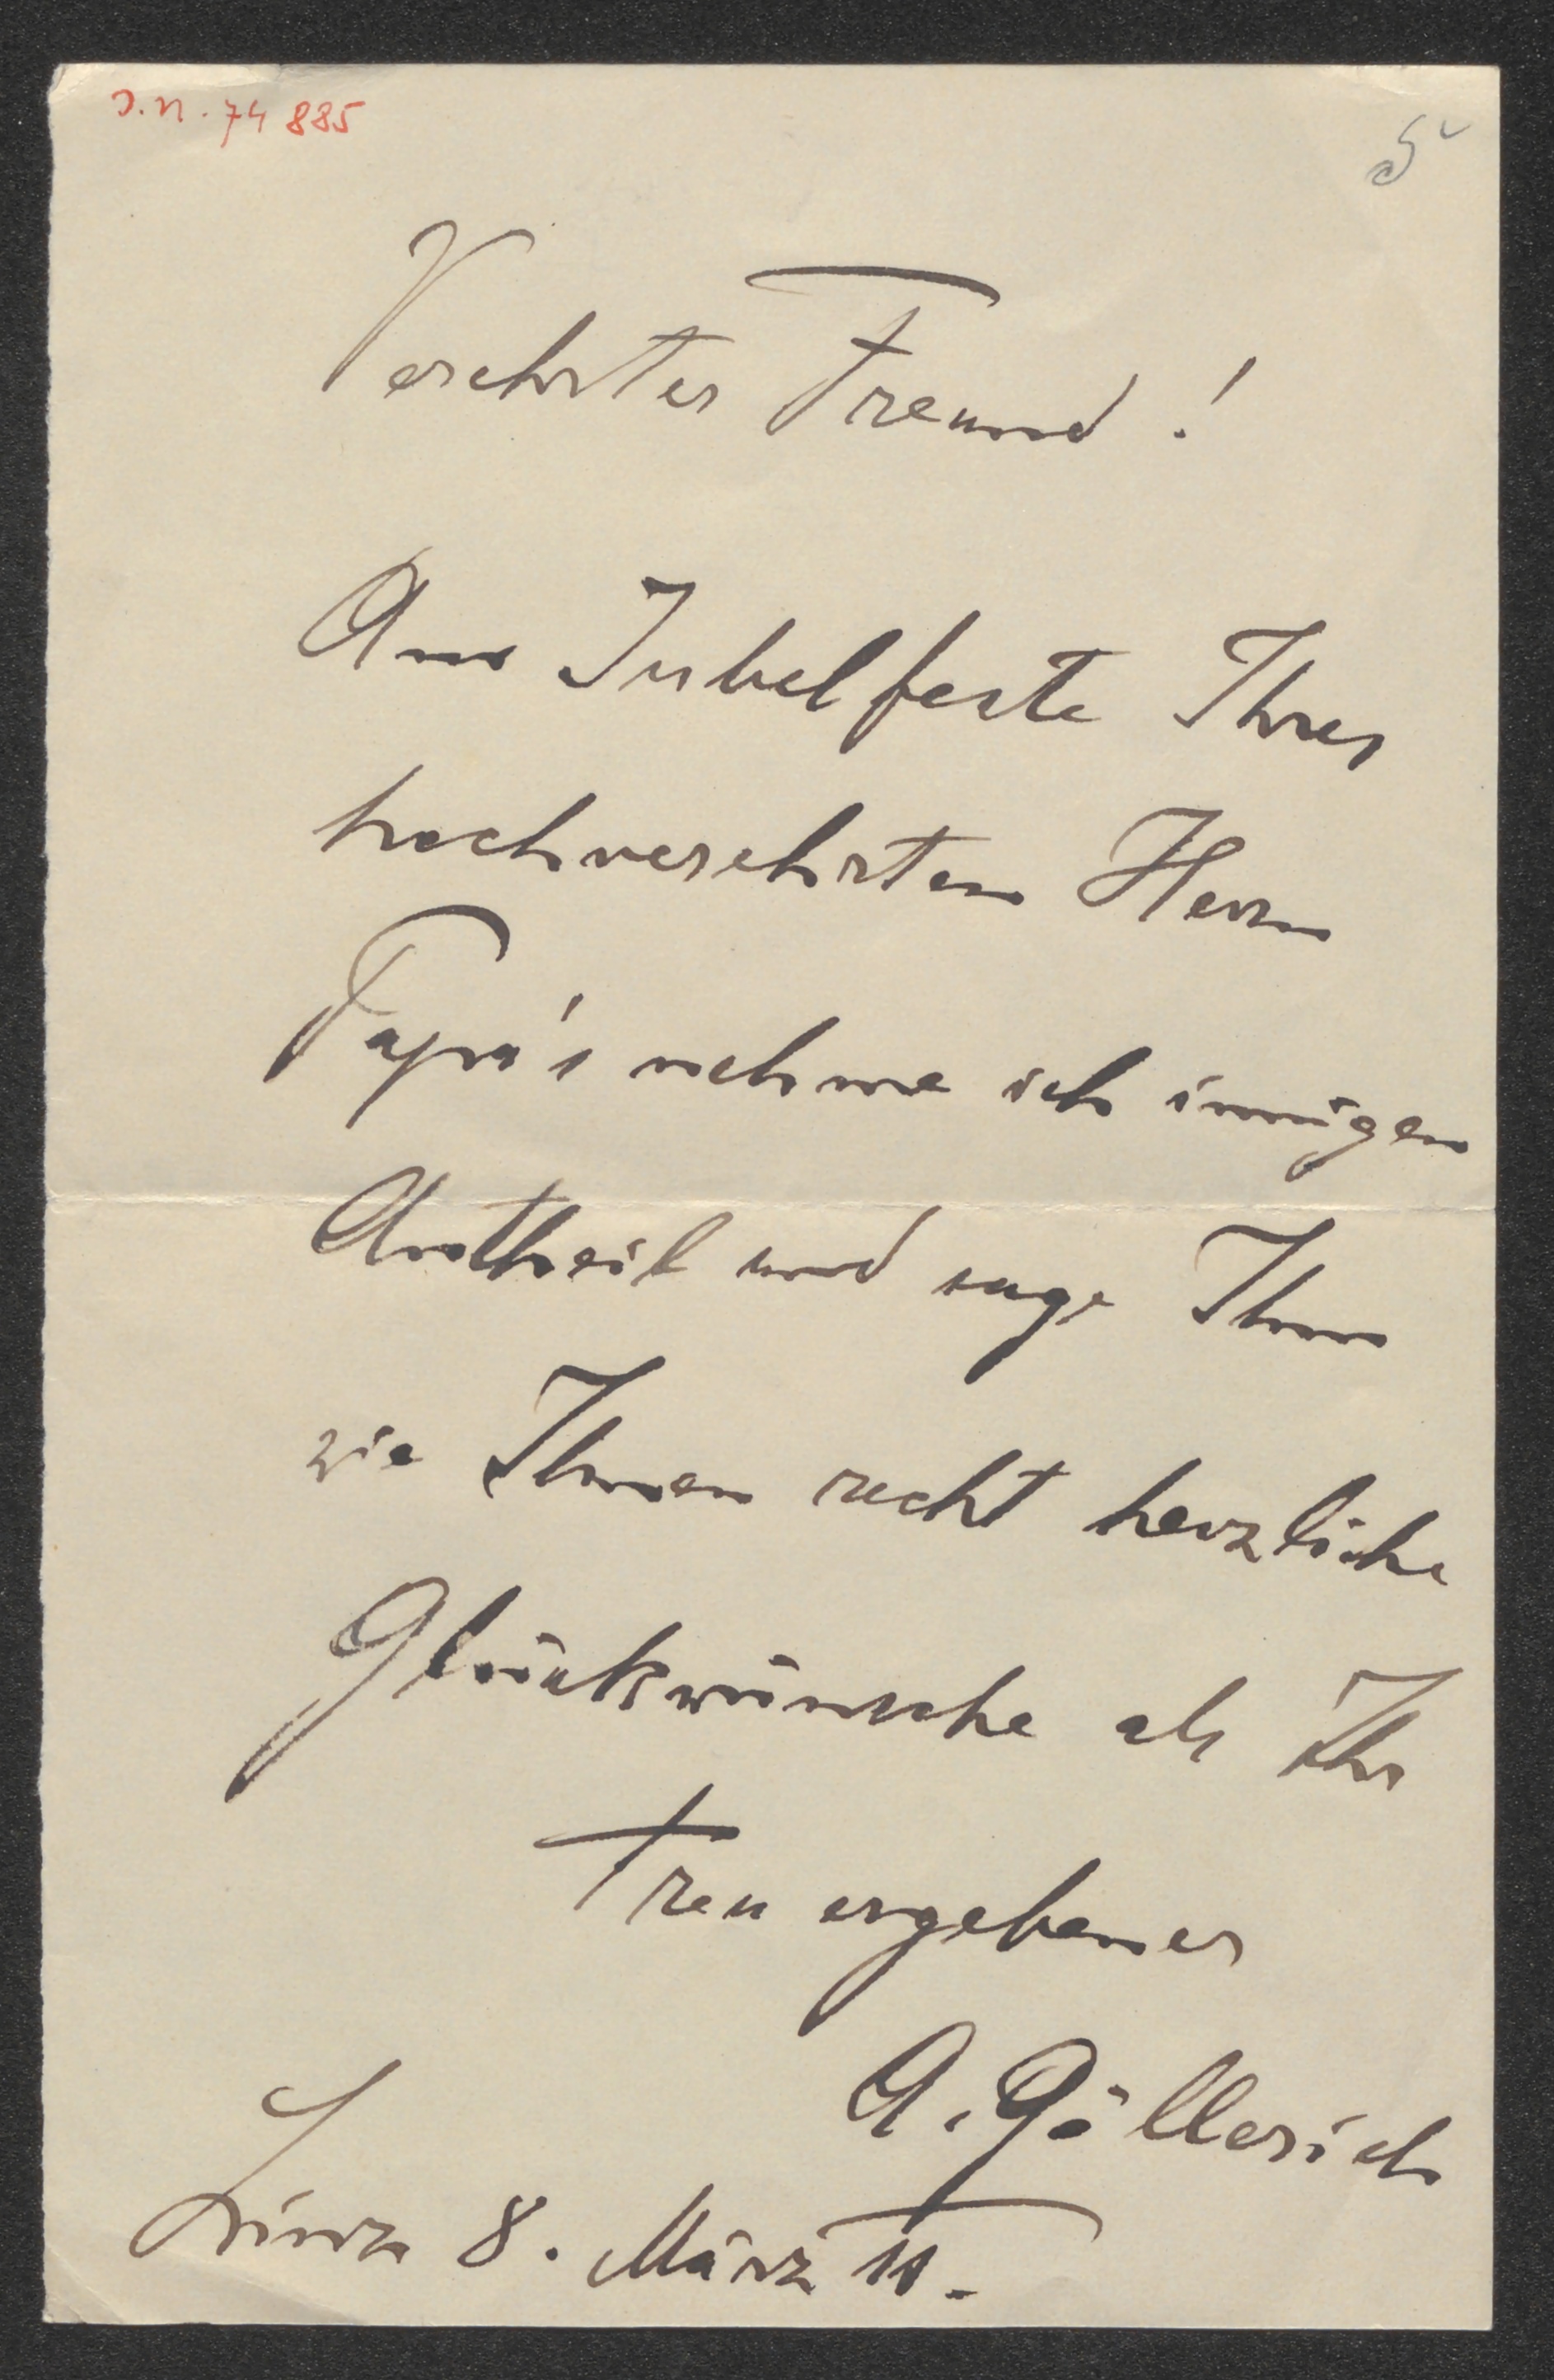 J.N. 74 885
5
Verehrter Freund!
Am Jubelfeste Ihres
hochverehrten Herrn
Papa's nehme ich innigen
Antheil und sage Ihm
wie Ihnen recht herzliche
Glückwünsche als Ihr
treu ergebener
A. Göllerich
Linz 8. März 11.